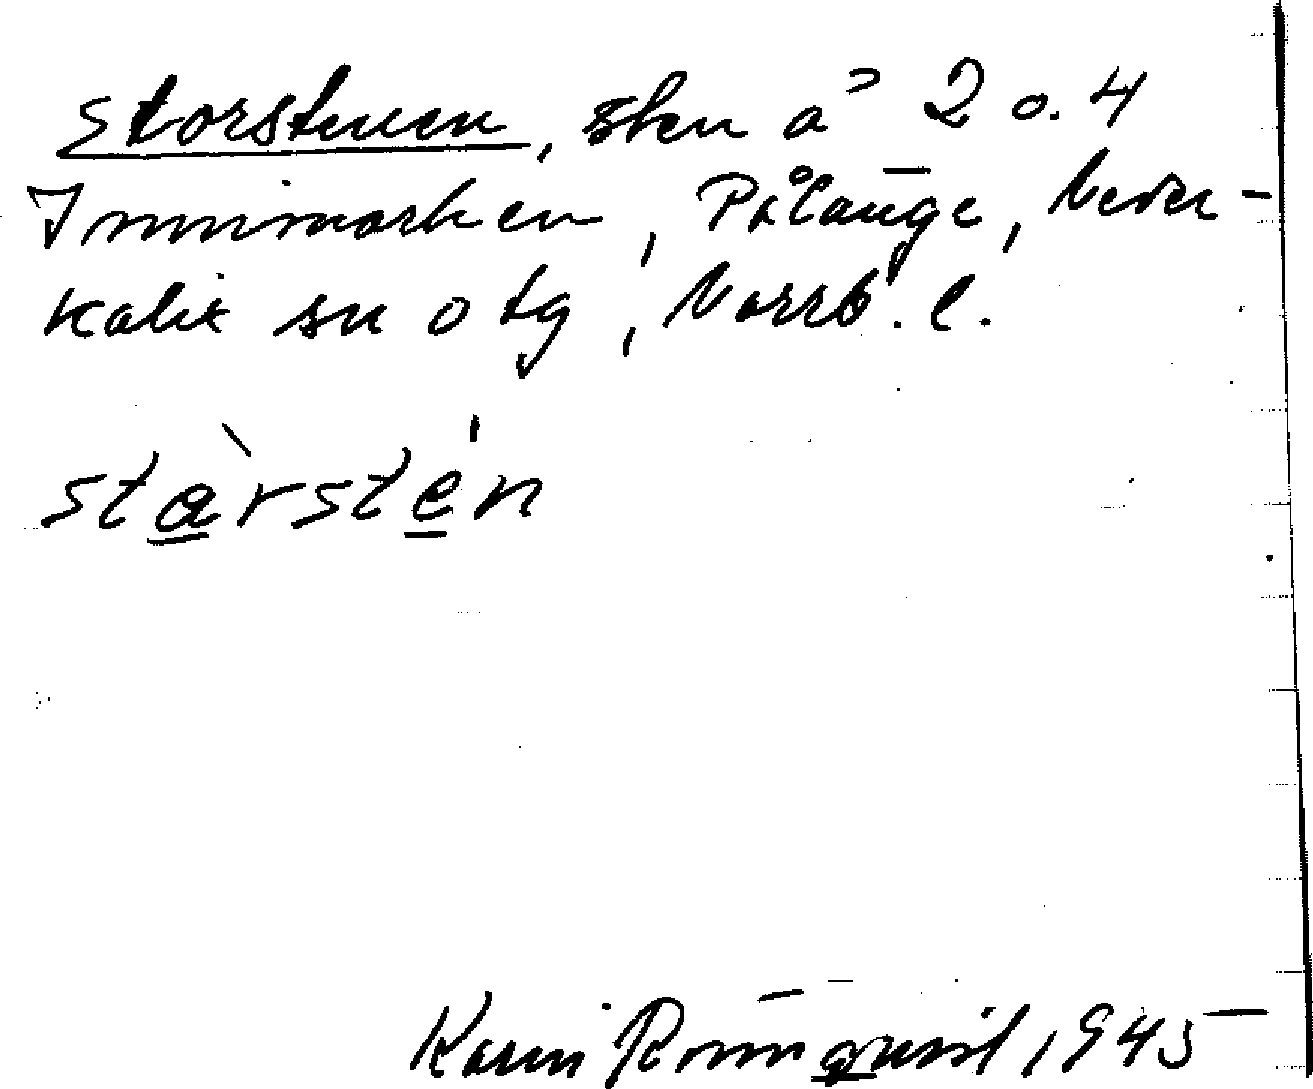 Storstenen, sten å 2 o. 4
Innimarken, Pålänge, Neder-
kalix sn o tg, Norrb. l.
stàrstén
Karin Rönnquist, 1945